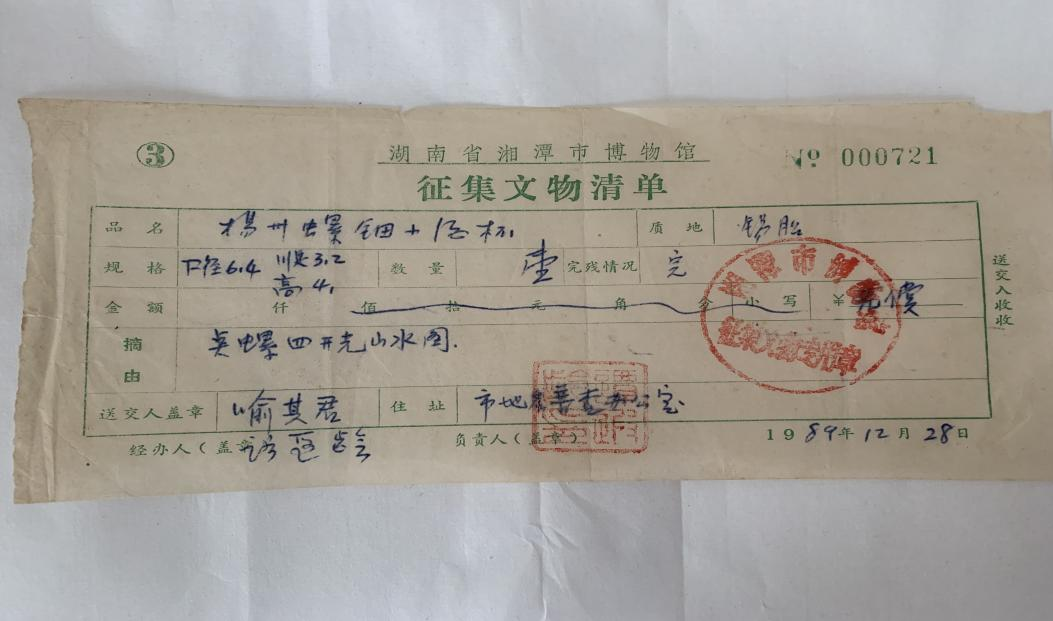 ③ 湖南省湘潭市博物馆 № 000721
征集文物清单
品名 楊州 螺钿 酒杯 质地 锡胎
规格 口径6.4 底3.2 高4. 数量 壹 完残情况 完
金额 仟 佰 拾 元 角 分 小写 ¥ 无價
摘由 螺四开光山水图.
送交人盖章 喻其君 住址 市地名普查办公室
经办人(盖章) 负责人(盖章) 1989年12月28日
送交入收收